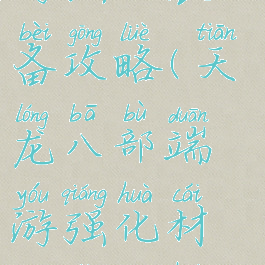 bèi gōng lüè tiān
备攻略(天
lóng bā bù duān
龙八部端
yóu qiáng huà cái
游强化材